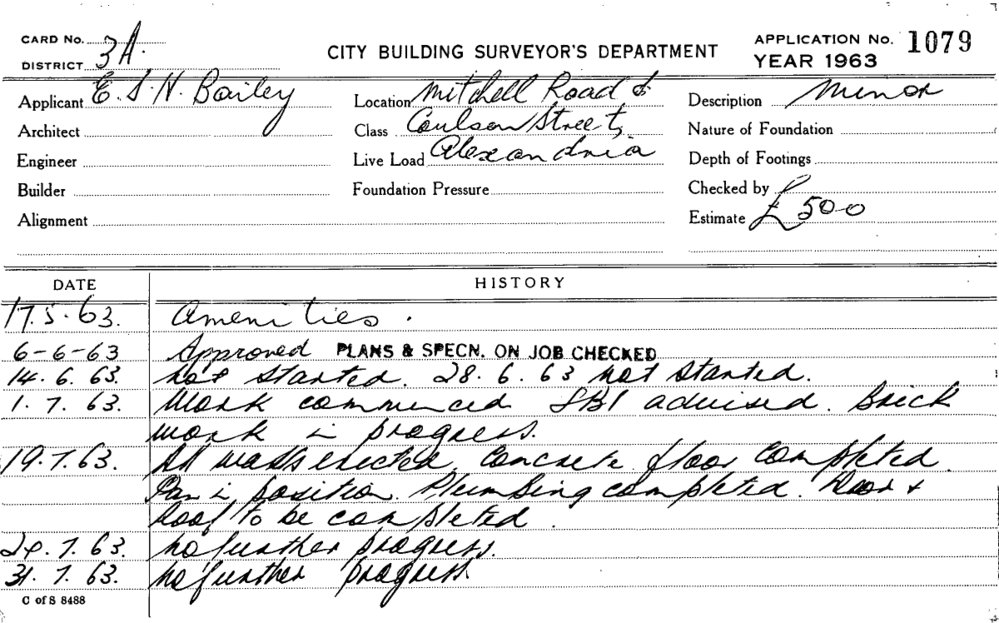 CARD No. 3A.
DISTRICT
CITY BUILDING SURVEYOR'S DEPARTMENT
APPLICATION No. 1079
YEAR 1963
Applicant E. S. H. Bailey
Architect
Engineer
Builder
Alignment
Location Mitchell Road &
Class Coulson Street,
Live Load Alexandria
Foundation Pressure
Description Minor
Nature of Foundation
Depth of Footings
Checked by
Estimate £500
DATE HISTORY
17.5.63. Amenities.
6-6-63 Approved PLANS & SPECN. ON JOB CHECKED
14.6.63. not started. 28.6.63 not started.
1.7.63. Work commenced SBI advised. Brick
work in progress.
19.7.63. All walls erected, concrete floor completed.
Pan in position. Plumbing completed. Door &
Roof to be completed.
24.7.63. no further progress.
31.7.63. no further progress.
C of S 8488